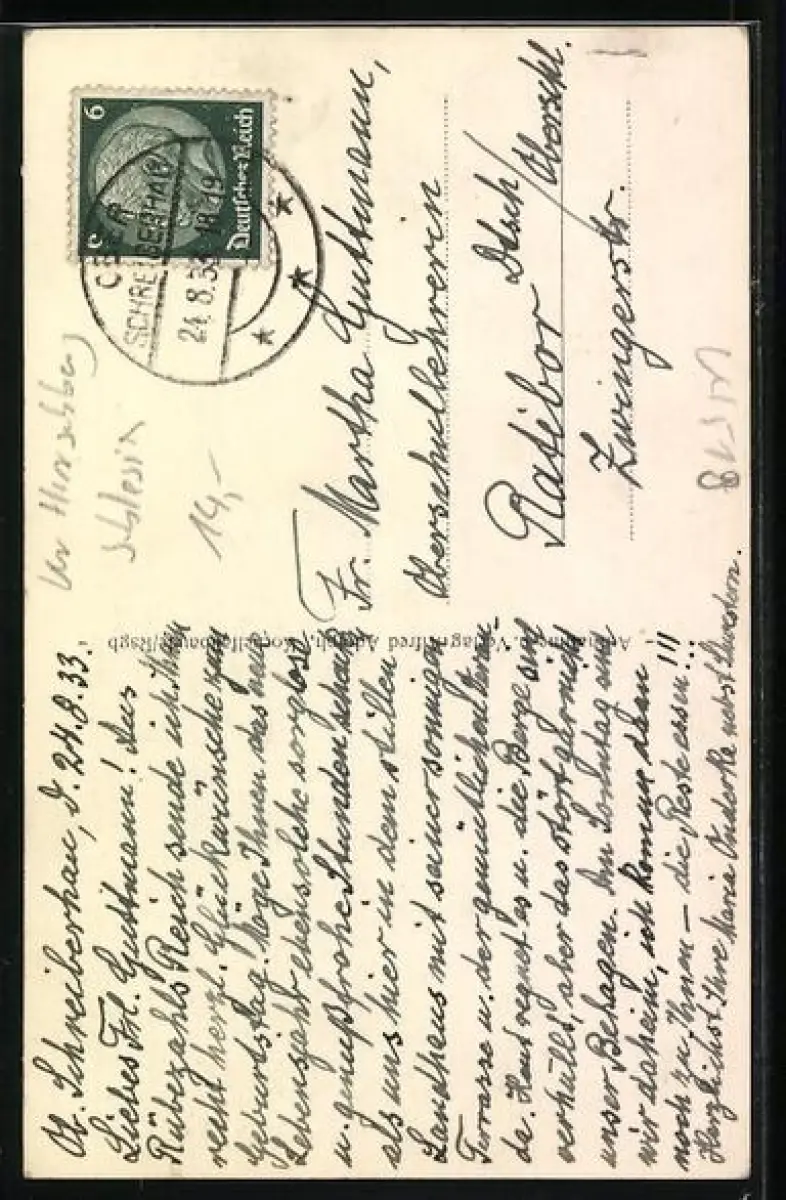 Ob. Schreiberhau, d. 24.8.33.
Liebes Frl. Guttmann! Aus
Rübezahls Reich sende ich Ihnen
recht herzl. Glückwünsche zum
Geburtstag. Möge Ihnen das neue
Lebensjahr ebensolche sorglose
u. genußfrohe Stunden schenken
als uns hier in dem stillen
Landhaus mit seiner sonnigen
Terrasse u. der gemütlichen
da. Heut regnet es u. die Berge sind
verhüllt, aber das stört garnicht
unser Behagen. Am Sonntag sind
wir daheim, ich komme dann
noch zu Ihnen – die Reste essen!!!
Herzlichst Ihre Maria Onderka nebst Schwestern.
Fr. Martha Guttmann,
Oberschullehrerin
Ratibor Dtsch/Oberschl.
Zwingerstr.
6 6
Deutsches Reich
OBER
SCHREIBERHAU
24.8.33 18-19
Schlesin
14,-
Verlag Alfred Adolph